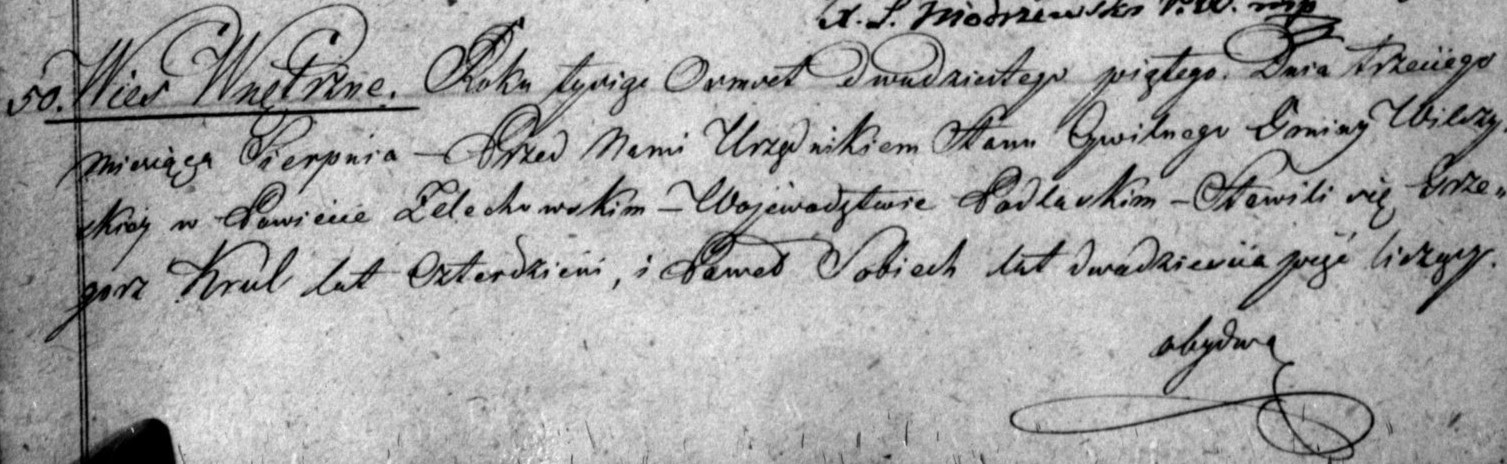 X. S. Modrzewski P. W. mp
50. Wies Wnętrzne. Roku tysige Ormset dwudziestego piątego. Dnia trzeciego
miesiąca Sierpnia – Przed Nami Urzędnikiem Stanu Cywilnego Gminy Wilczy
skiey w Powiecie Zelechowskim – Wojewodztwie Podlaskim – Stawili się Grze„
gorz Krul lat Czterdzieści, i Paweł Sobiech lat dwadzieścia pięć liczący.
obydwa